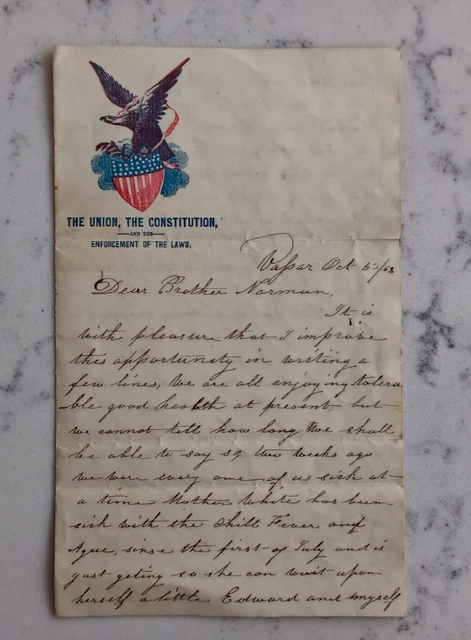 THE UNION, THE CONSTITUTION,
AND THE
ENFORCEMENT OF THE LAWS.
Vassar Oct 5th/63
Dear Brother Norman,
It is
with pleasure that I improve
this opportunity in writing a
few lines, We are all enjoying tolera
ble good health at present but
we cannot tell how long We shall
be able to say so, two weeks ago
we were every one of us sick at
a time Mother White has been
sick with the Chill Fever and
Ague, since the first of July and is
just geting so she can wait upon
herself a little Edward and myself